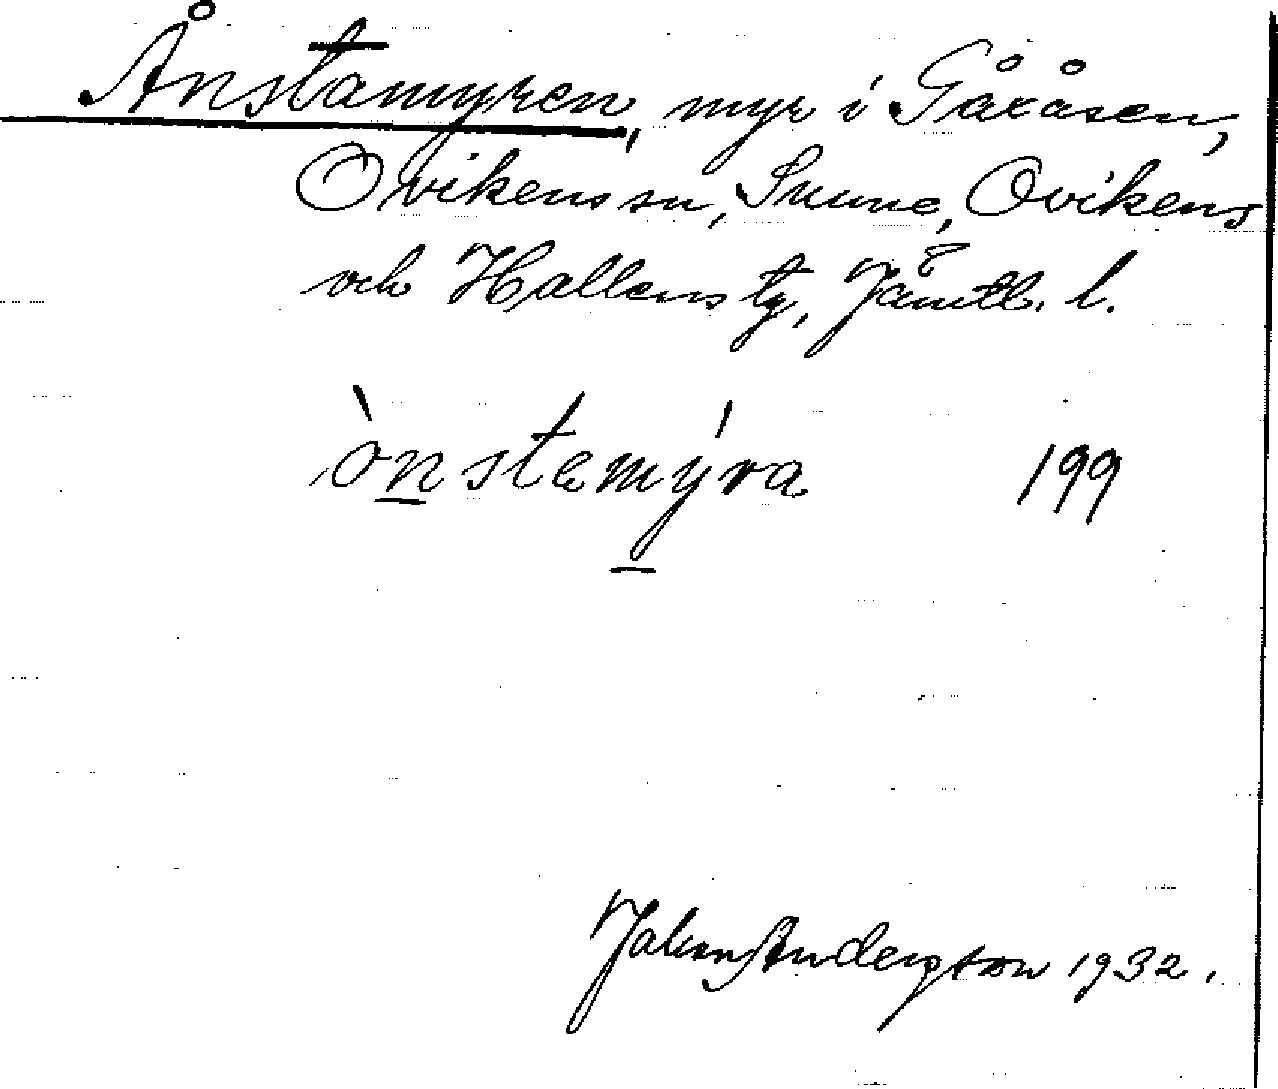 Ånstamyren, myr i Gåxåsen,
Ovikens sn, Sunne, Ovikens
och Hallens tg, Jämtl. l.
ònstemýra 199
Johan Andersson 1932.